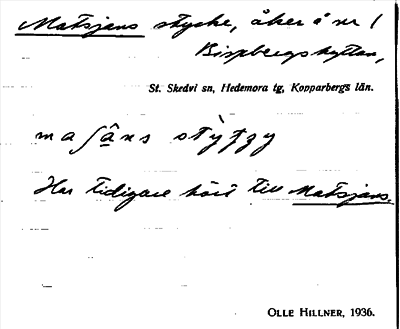 Matsjans stycke, åker å nr 1
Bispbergshyttan,
St. Skedvi sn, Hedemora tg, Kopparbergs län.
maʃâns
Har tidigare hört till Matsjans.
OLLE HILLNER, 1936.